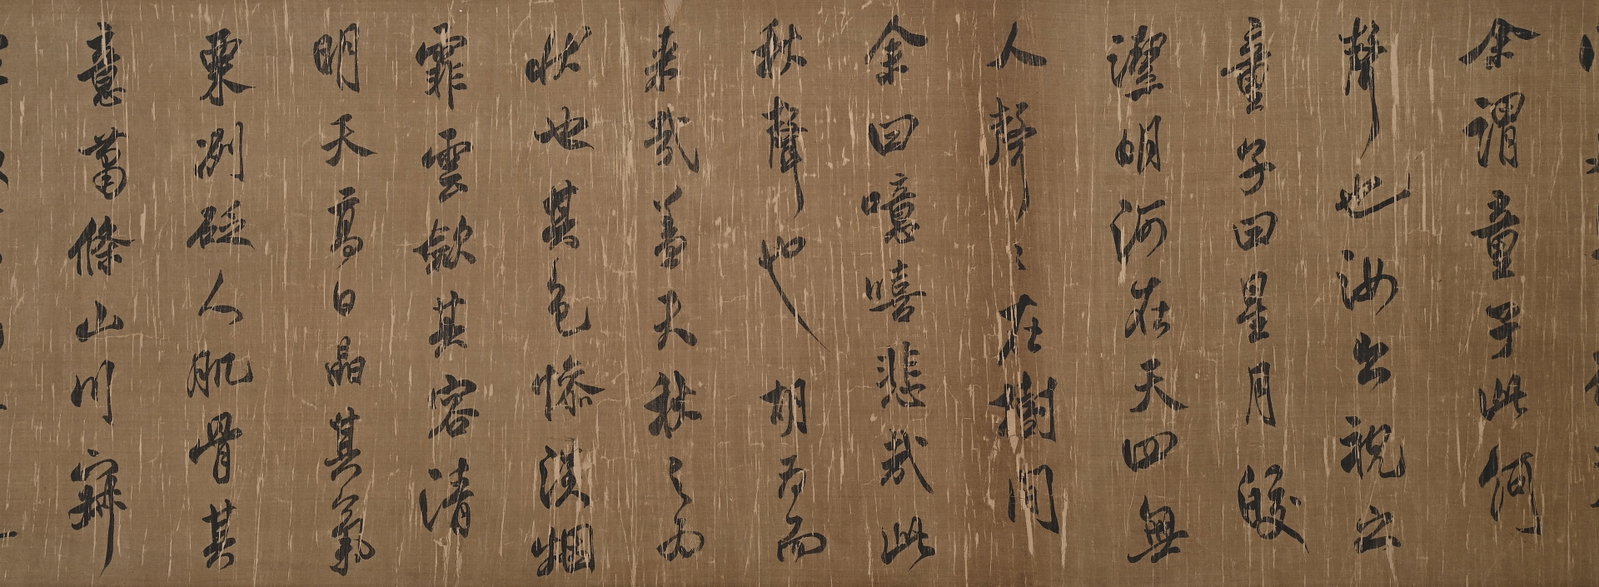 余謂童子此何
聲也汝出視之
童子曰星月皎
潔明河在天四無
人聲〻在樹間
余曰噫嘻悲哉此
秋聲也胡為而
来哉蓋夫秋之為
狀也其色慘淡烟
霏雲斂其容清
明天高日晶其氣
栗冽砭人肌骨其
意蕭條山川寂